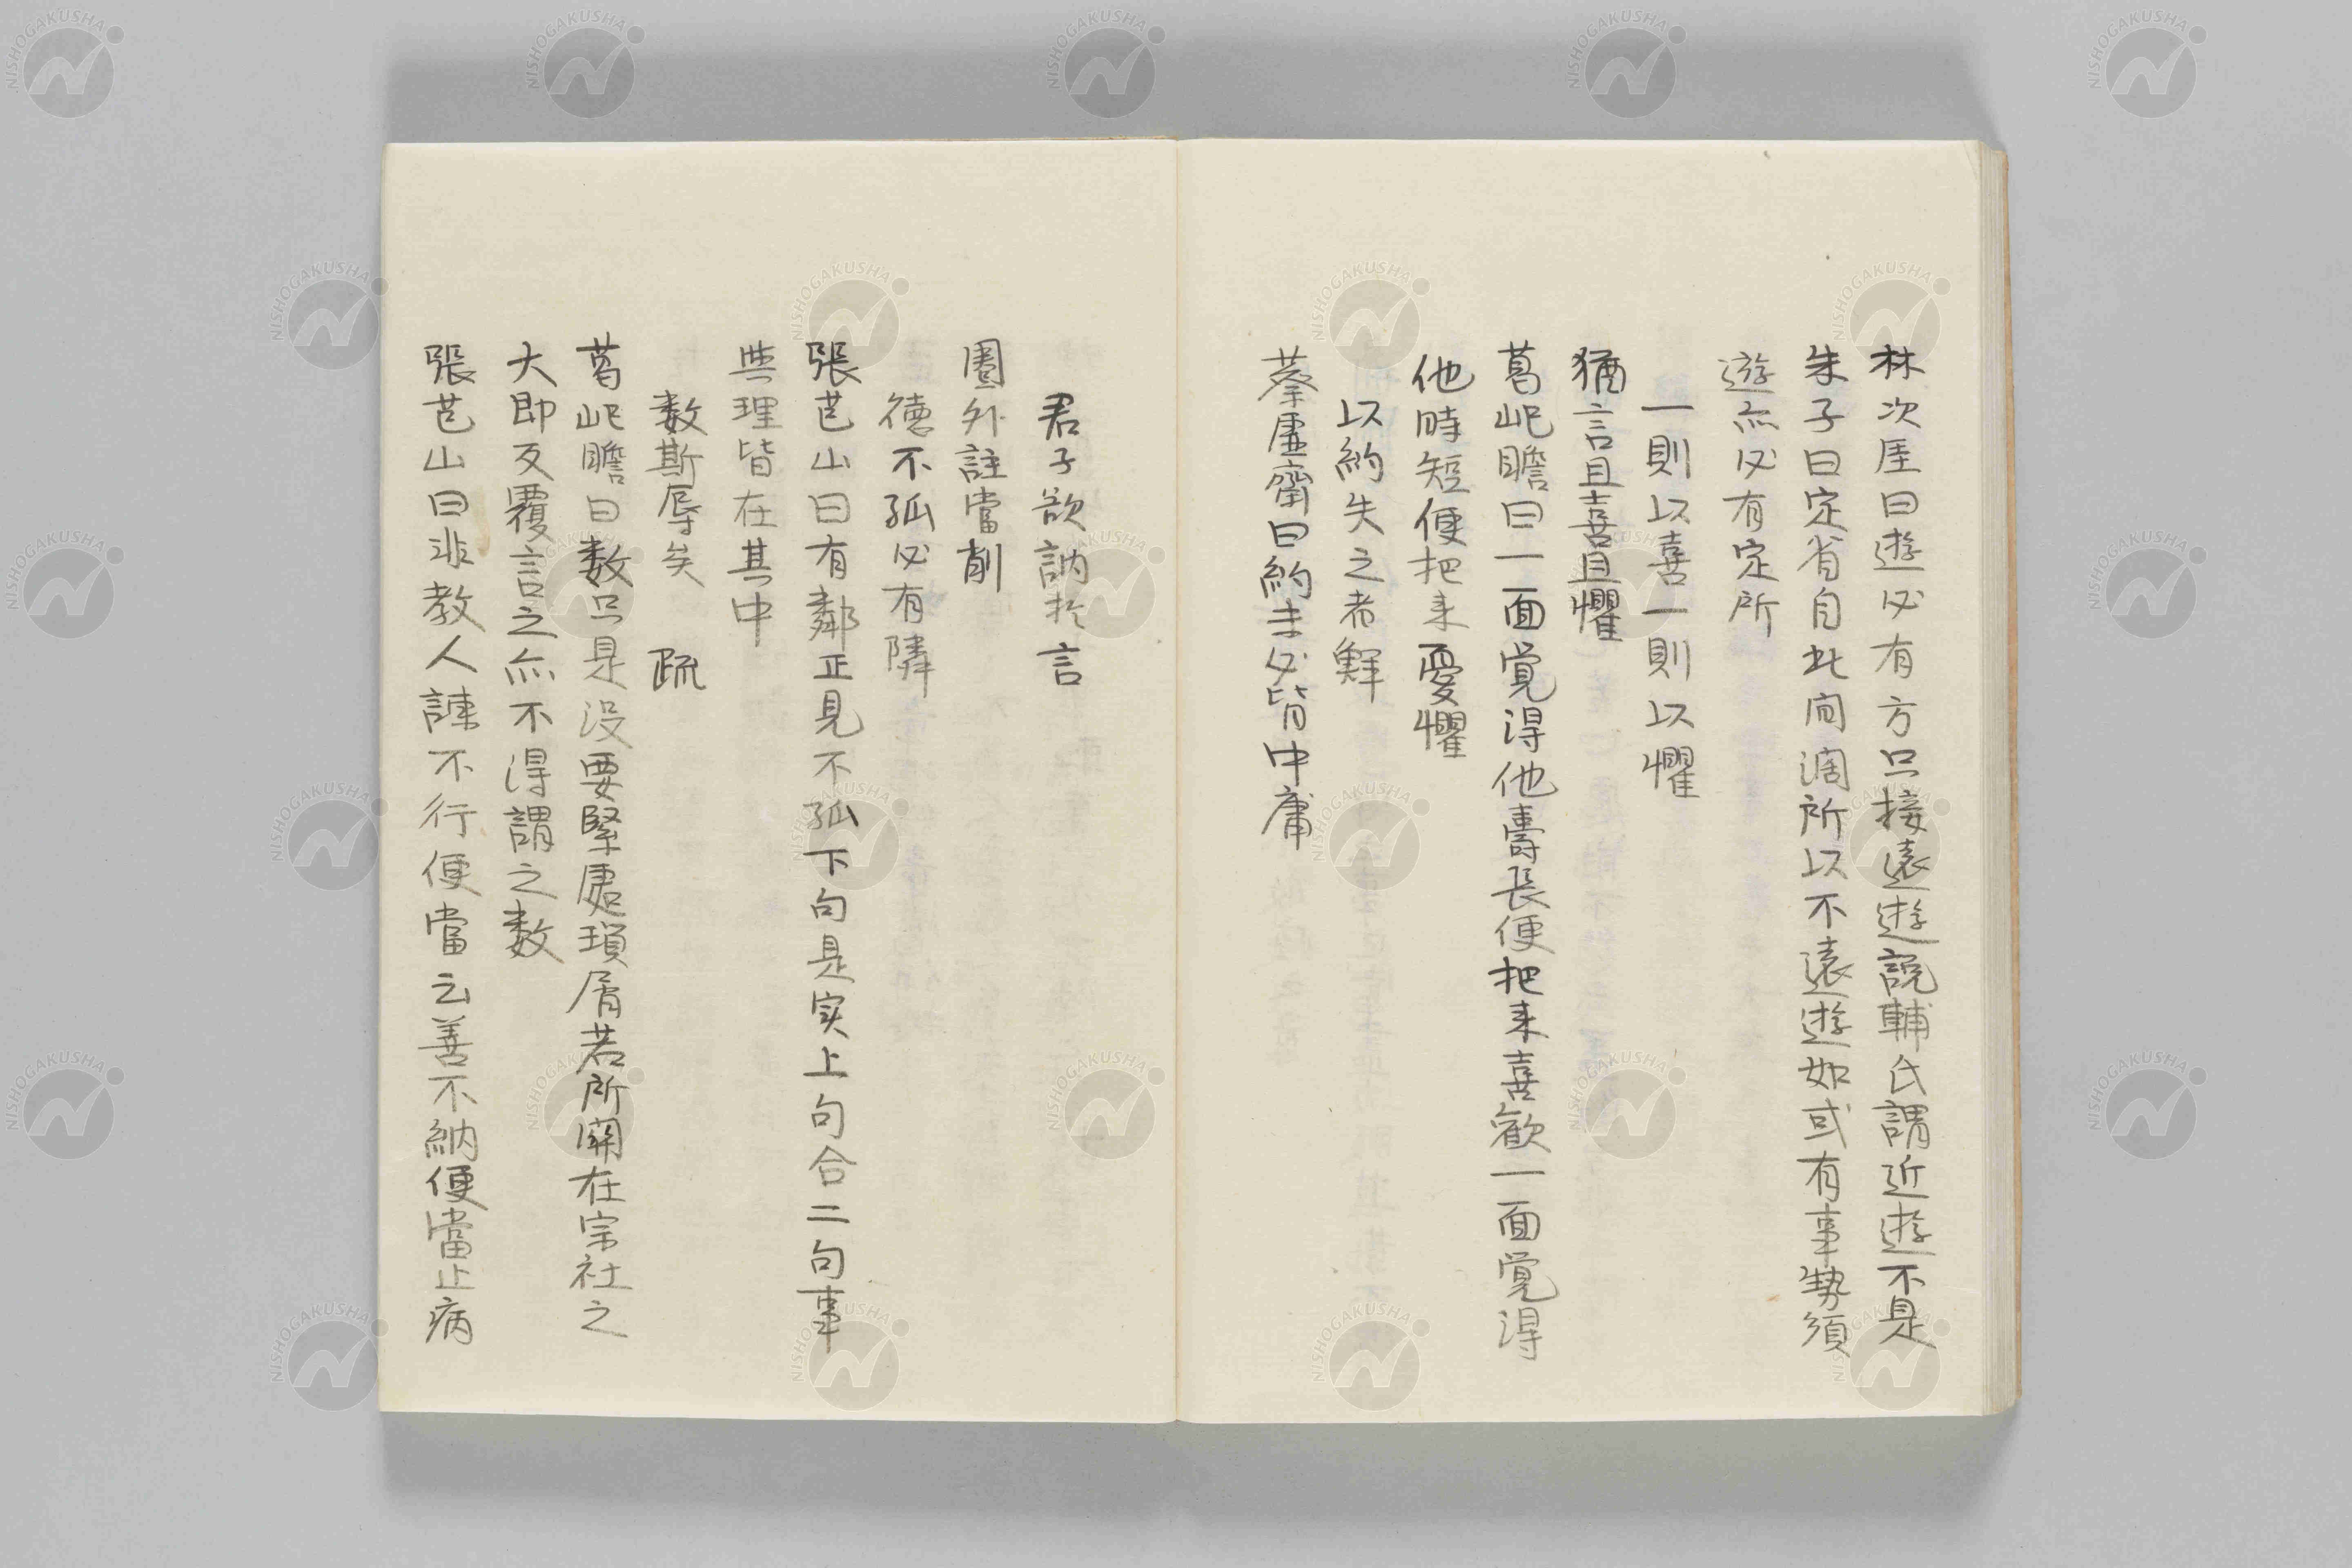 林次厓曰遊必有方只接遠遊說輔氏謂近遊不是
朱子曰定省自此闊所以不遠遊如或有事勢須
遊亦必有定所
一則以喜一則以懼
猶言且喜且懼
葛屺瞻曰一面覚得他壽長便把来喜歡一面覚得
他時短便把来憂懼
以約失之者鮮
蔡虛齋曰約未必皆中庸
君子欲訥於言
圏外註當削
德不孤必有隣
張芑山曰有鄰正見不孤下句是実上句合二句事
與理皆在其中
数斯辱矣 疏
葛屺瞻曰数只是没要緊處瑣屑若所関在宗社之
大即反覆言之亦不得謂之数
張芑山曰非教人諫不行便當去善不納便當止病
NISHOGAKUSHA